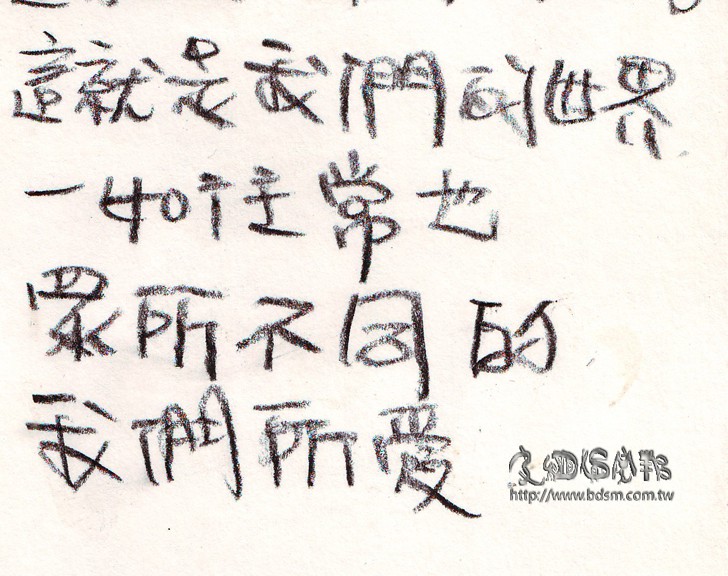 這就是我們的世界
一如往常也
眾所不同的
我們所愛
http://www.bdsm.com.tw